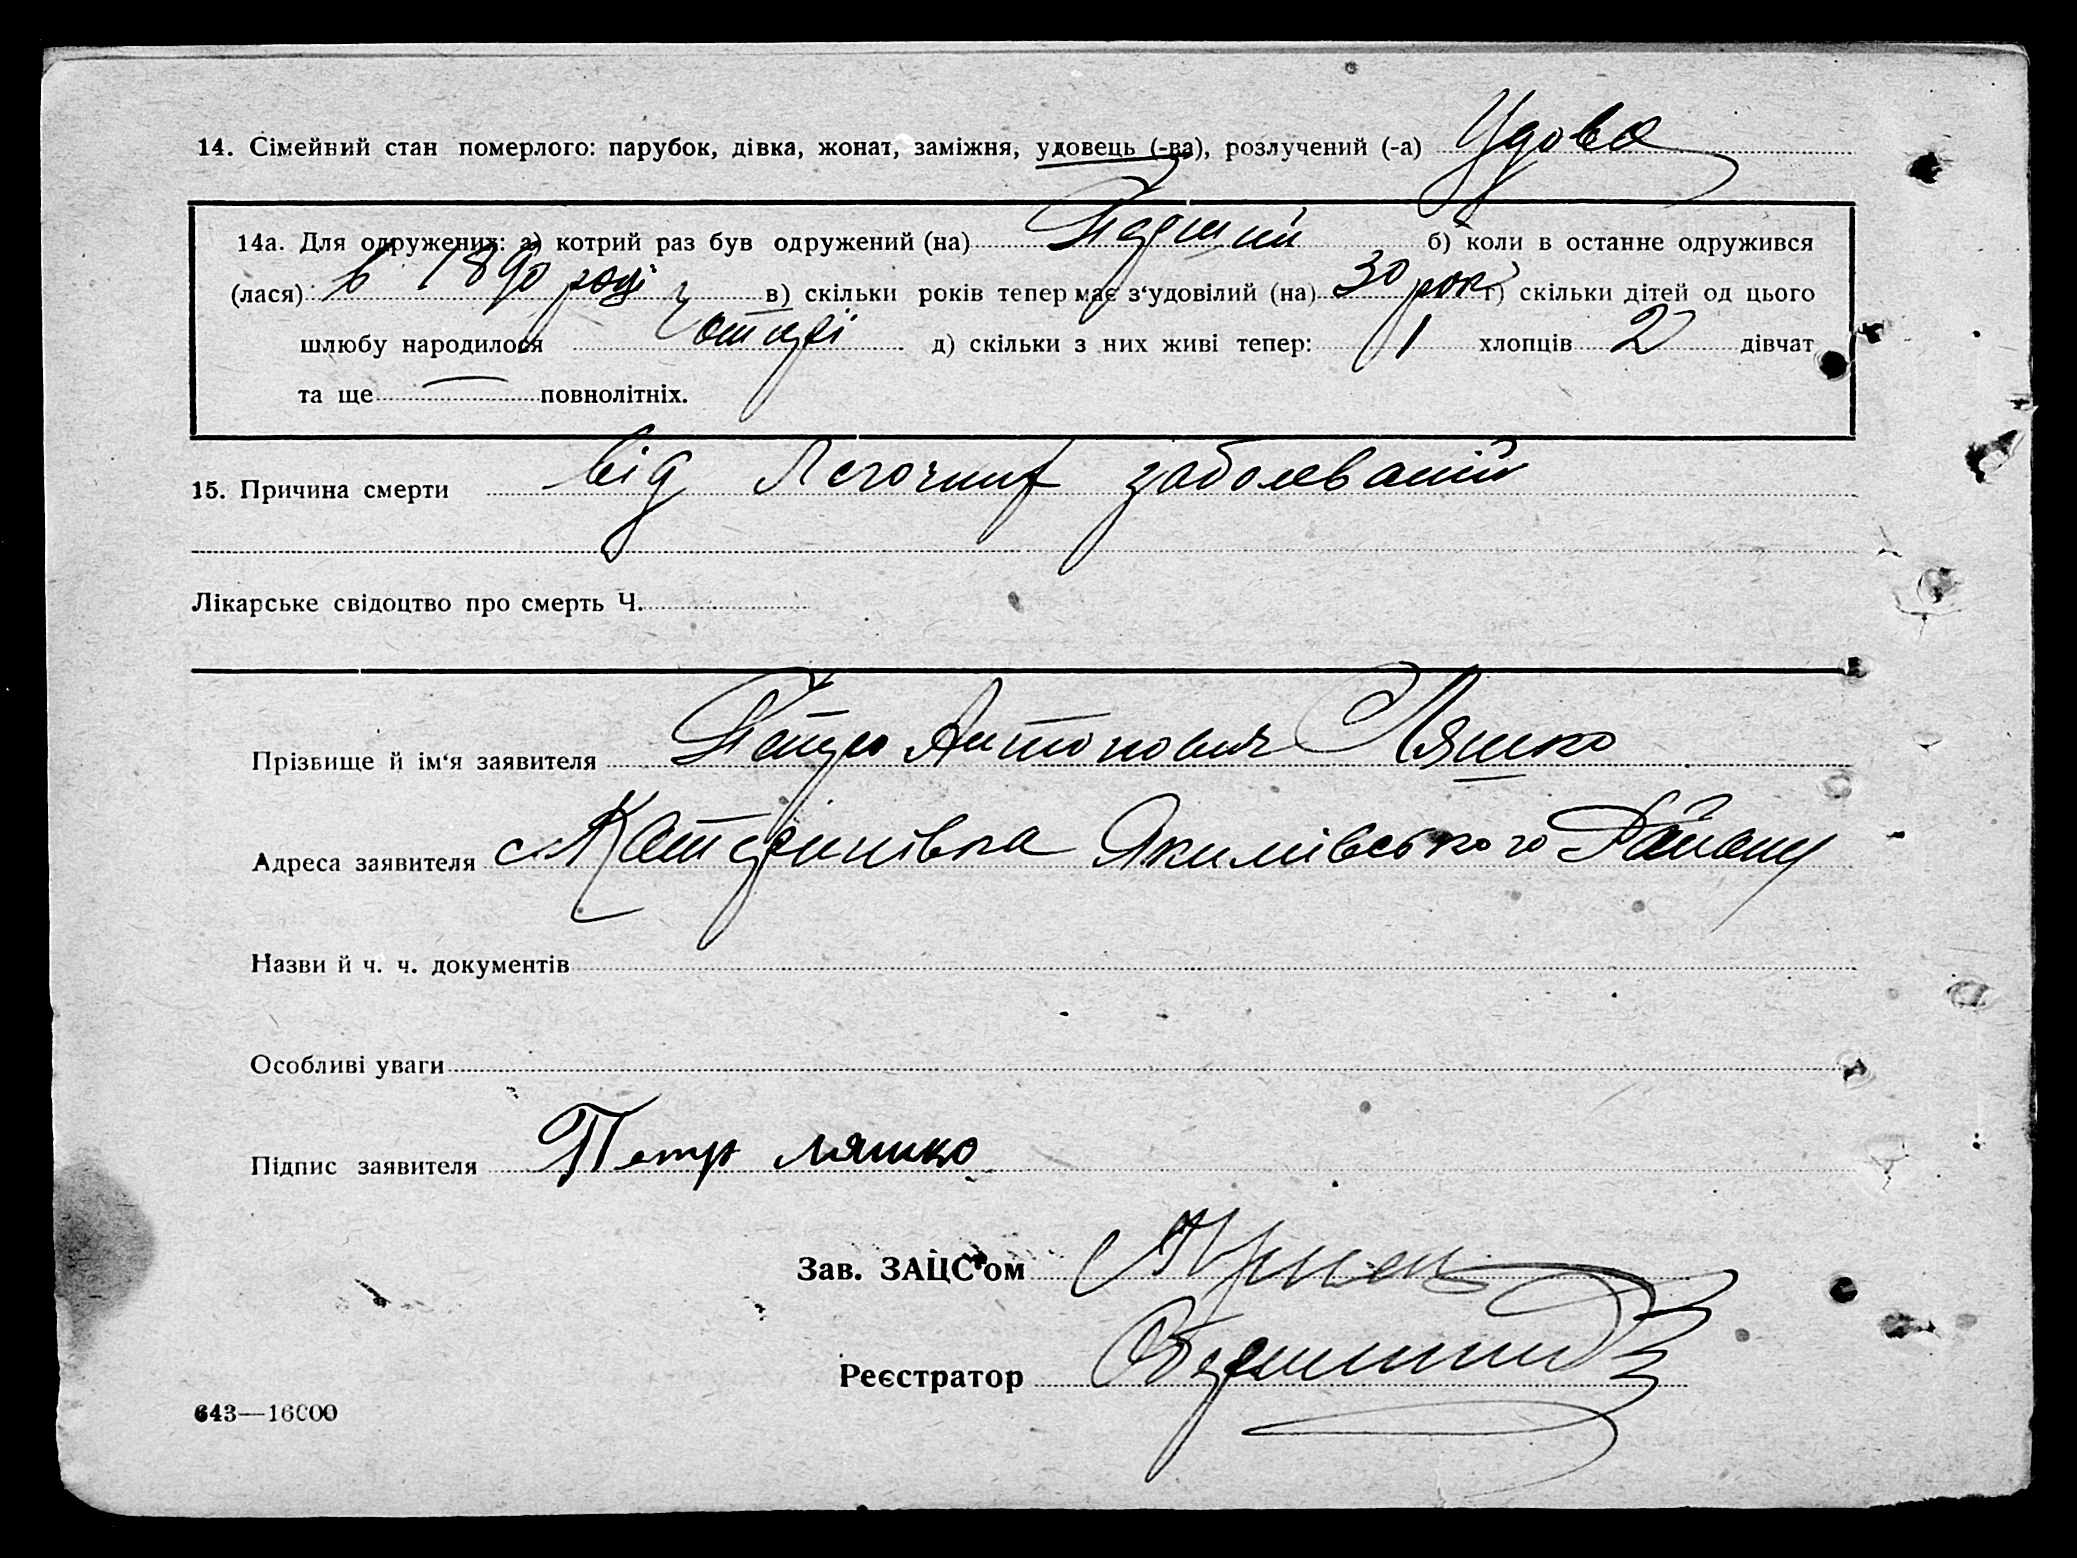 14. Сімейний стан померлого: парубок, дівка, жонат, заміжня, удовець (-ва), розлучений (-а) Удова
14а. Для одружених: а) котрий раз був одружений (на) Первий б) коли в останне одружився
(лася) в 1890 році в) скільки років тепер має з'удовілий (на) 30 рок г) скільки дітей од цього
шлюбу народилося Чотирі д) скільки з них живі тепер: 1 хлопців 2 дівчат
та ще — повнолітніх.
15. Причина смерти від Легочних заболеваній
Лікарське свідоцтво про смерть Ч.
Прізвище й ім'я заявителя Петро Антонович Ляшко
Адреса заявителя с. Катеринівка Якимівського Району
Назви й ч. ч. документів
Особливі уваги
Підпис заявителя Петр Ляшко
Зав. ЗАЦС'ом
Реєстратор
643—16000